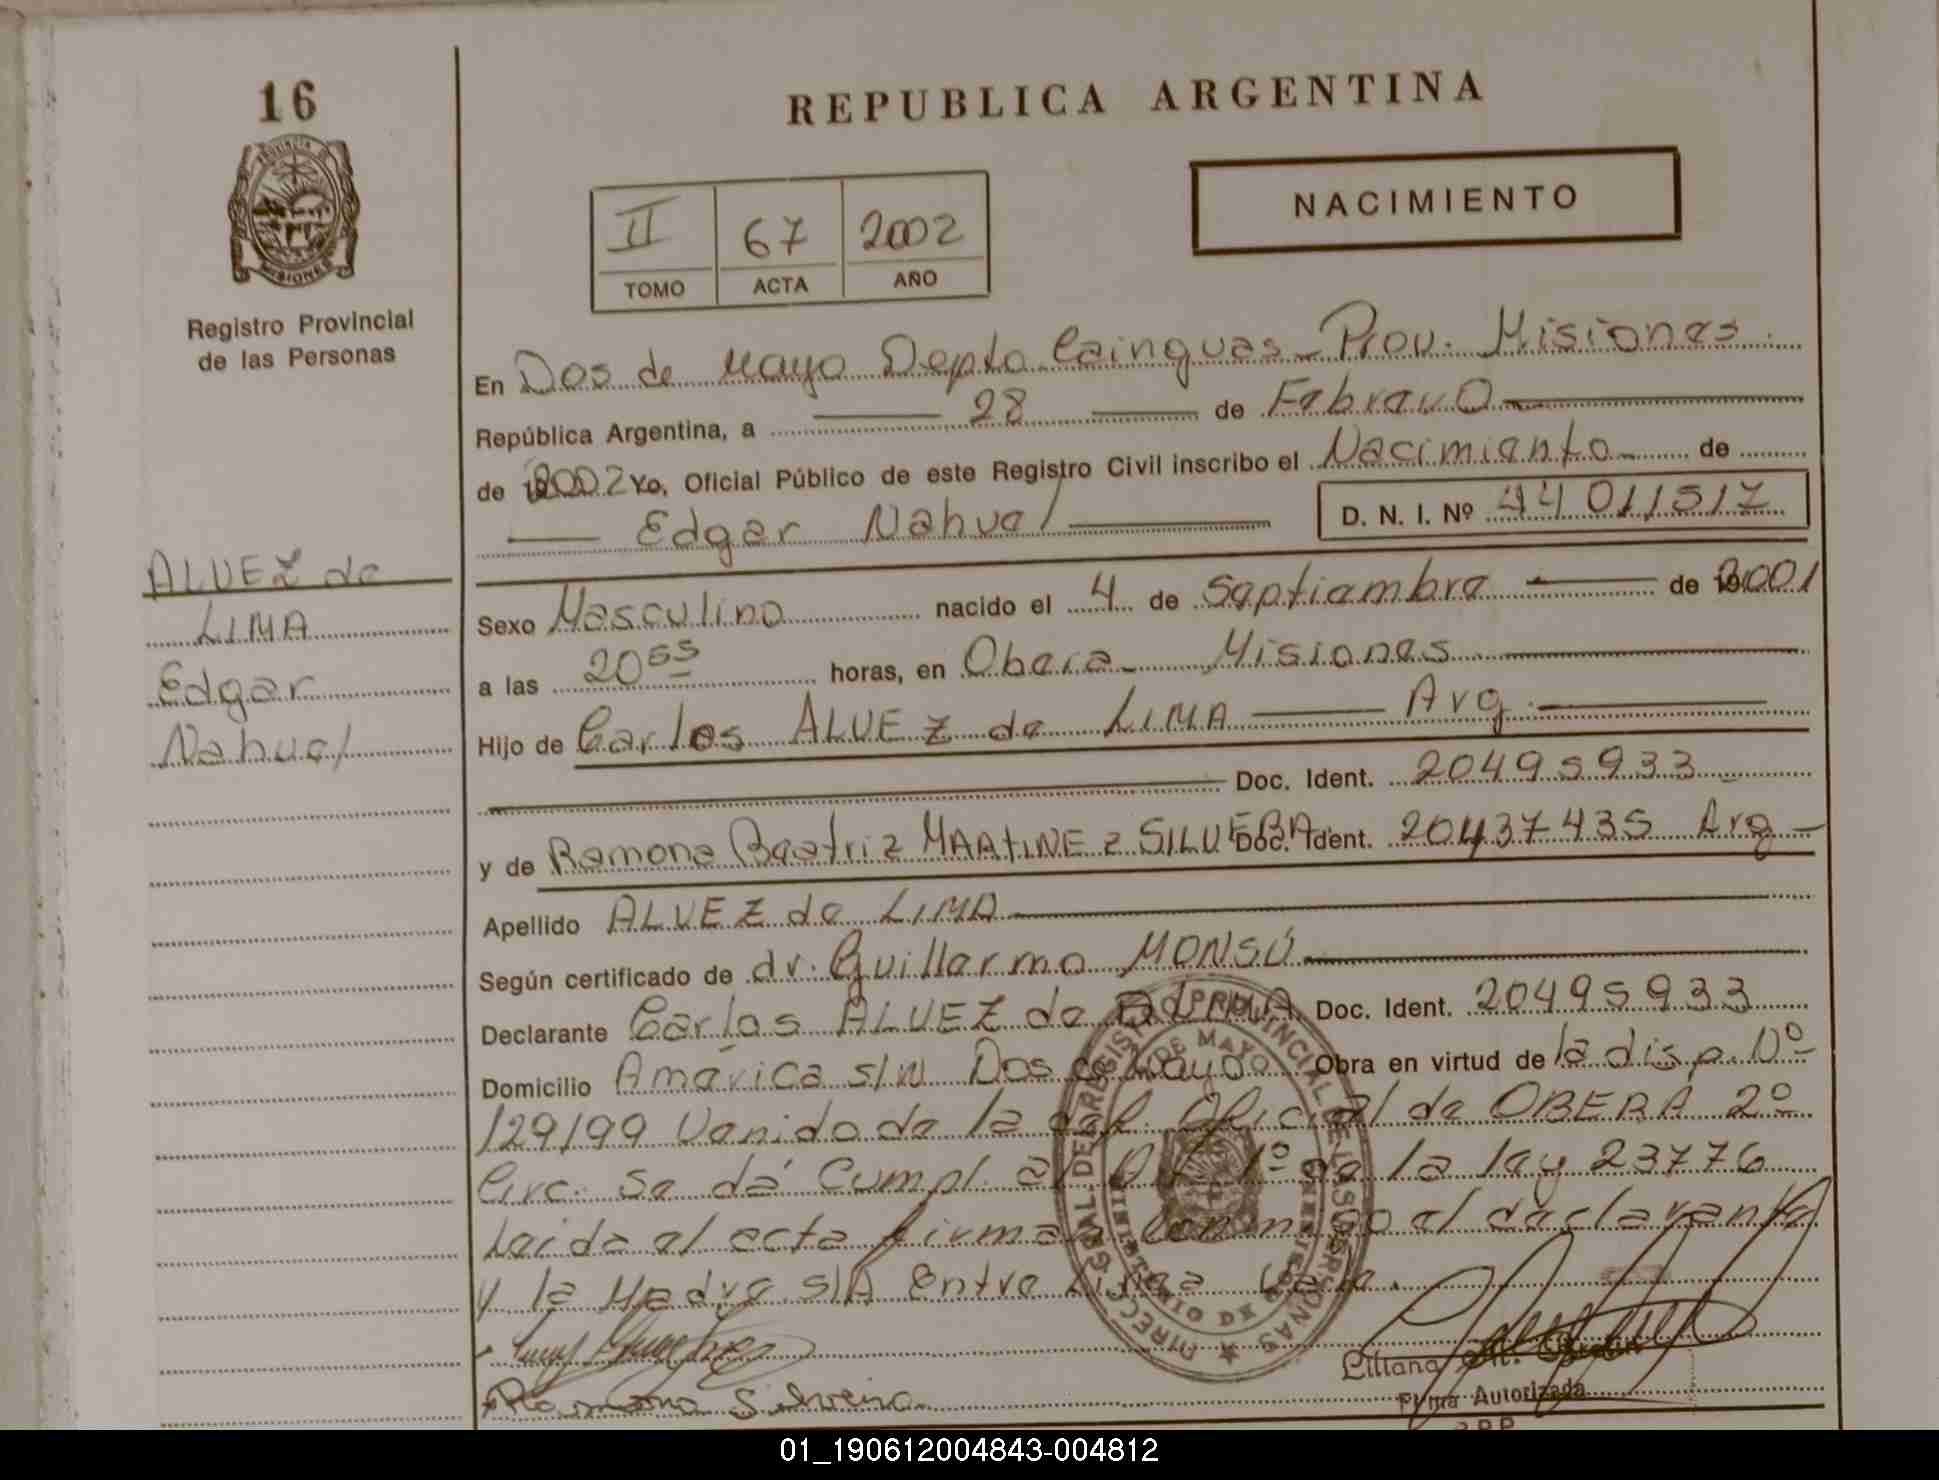 16
REPUBLICA ARGENTINA
PROVINCIA
MISIONES
II 67 2002
TOMO ACTA AÑO
NACIMIENTO
Registro Provincial
de las Personas
En Dos de Mayo Depto Cainguas - Prov. Misiones.
República Argentina, a 28 de Febrero
de 2002 Yo, Oficial Público de este Registro Civil inscribo el Nacimiento de
Edgar Nahuel D. N. I. Nº 44 011517
ALVEZ de
LIMA
Edgar
Nahuel
Sexo Masculino nacido el 4 de Septiembre de 2001
a las 20 55 horas, en Obera - Misiones
Hijo de Carlos ALVEZ de LIMA Arg
Doc. Ident. 20495933
y de Ramona Beatriz MARTINEZ SILVERA Doc. Ident. 20437435 Arg
Apellido ALVEZ de LIMA
Según certificado de dr. Guillermo MONSÚ
Declarante Carlos ALVEZ de Doc. Ident. 20495933
Domicilio América s/N Dos de Mayo Obra en virtud de la disp. Nº
129/99 Venido de la del. Oficial de OBERÁ 2º
Circ. Se dá Cumpl. al 1º de la ley 23776
Leida el acta firman conmigo el declarante
y la Madre. S/A Entre Linea
Ramona Silveira
Liliana
Firma Autorizada
01_190612004843-004812